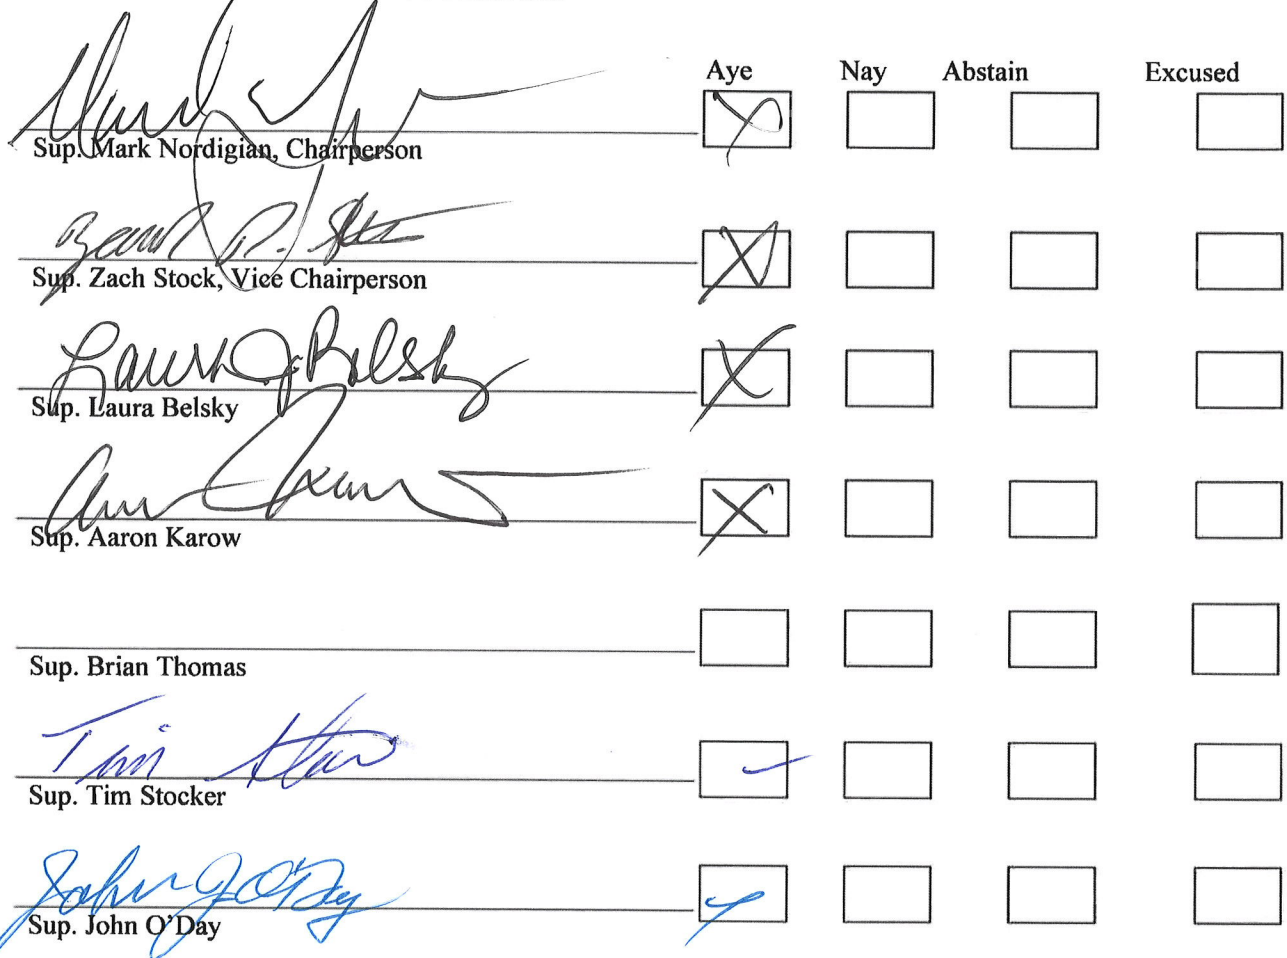 Aye Nay Abstain Excused
Sup. Mark Nordigian, Chairperson
Zach D. Stock
Sup. Zach Stock, Vice Chairperson
Laura J. Belsky
Sup. Laura Belsky
Sup. Aaron Karow
Sup. Brian Thomas
Tim Stocker
Sup. Tim Stocker
John J O'Day
Sup. John O'Day